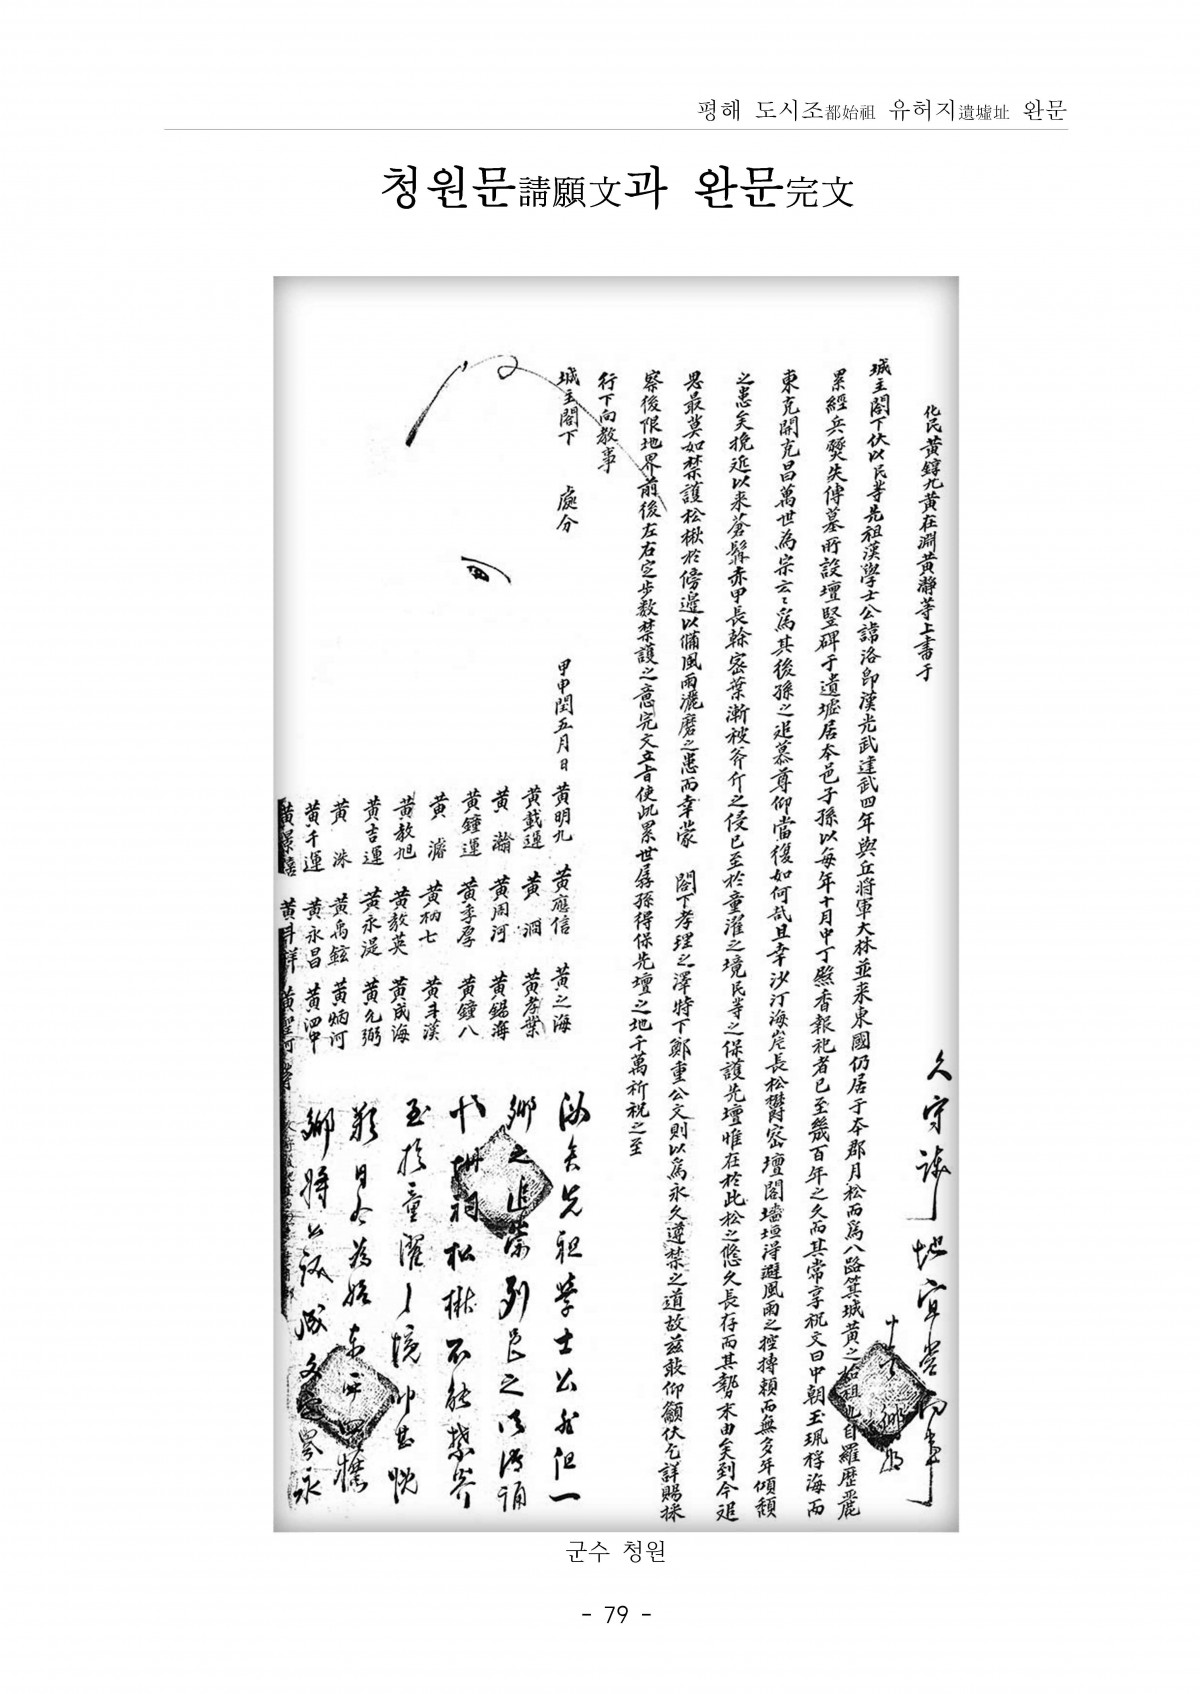 평해 도시조都始祖 유허지遺墟址 완문
청원문請願文과 완문完文
化民黃錞九黃在淵黃瀞等上書于
城主閤下伏以民等先祖漢學士公諱洛卽漢光武建武四年與丘將軍大林並來東國仍居于本郡月松而爲八路箕城黃之始祖也自羅歷麗
累經兵燹失傳墓所設壇竪碑于遺墟居本邑子孫以每年十月中丁爇香報祀者已至幾百年之久而其常享祝文曰中朝玉珮桴海而
東克開克昌萬世爲宗云云爲其後孫之追慕尊仰當復如何哉且幸沙汀海岸長松鬱密壇閣墻垣得避風雨之控搏賴而無多年傾頹
之患矣挽近以來蒼髥赤甲長榦密葉漸被斧斤之侵已至於童濯之境民等之保護先壇惟在於此松之悠久長存而其勢末由矣到今追
思最莫如禁護松楸於傍邊以備風雨灑磨之患而幸蒙 閤下孝理之澤特下鄭重公文則以爲永久遵禁之道故玆敢仰籲伏乞詳賜採
察後限地界前後左右定步數禁護之意完文立旨使此累世孱孫得保先壇之地千萬祈祝之至
行下向敎事
城主閤下 處分
甲申閏五月日
黃明九 黃應信 黃之海
黃載運 黃澗 黃孝業
黃瀚 黃周河 黃錫海
黃鍾運 黃季厚 黃鐘八
黃濬 黃柄七 黃斗漢
黃敎旭 黃敎英 黃成海
黃吉運 黃永湜 黃允弼
黃洙 黃禹鉉 黃炳河
黃千運 黃永昌 黃泗中
黃景禧 黃斗祥 黃聖河 等
學士公
鄕之追崇列邑之
松楸不能禁斧
至於童濯之境
군수 청원
- 79 -